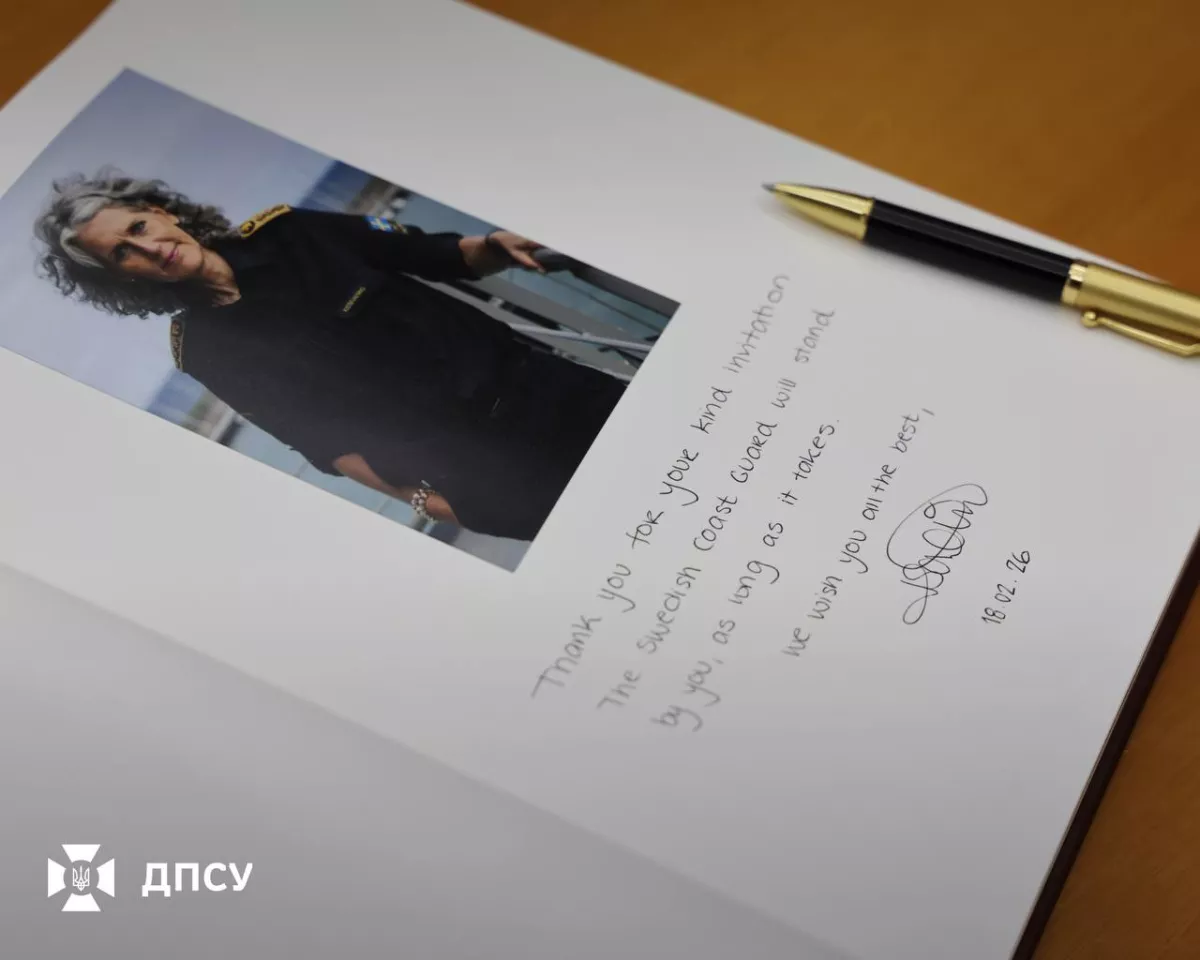 Thank you for your kind invitation
The Swedish Coast Guard will stand
by you, as long as it takes.
We wish you all the best,
18.02.26
ДПСУ